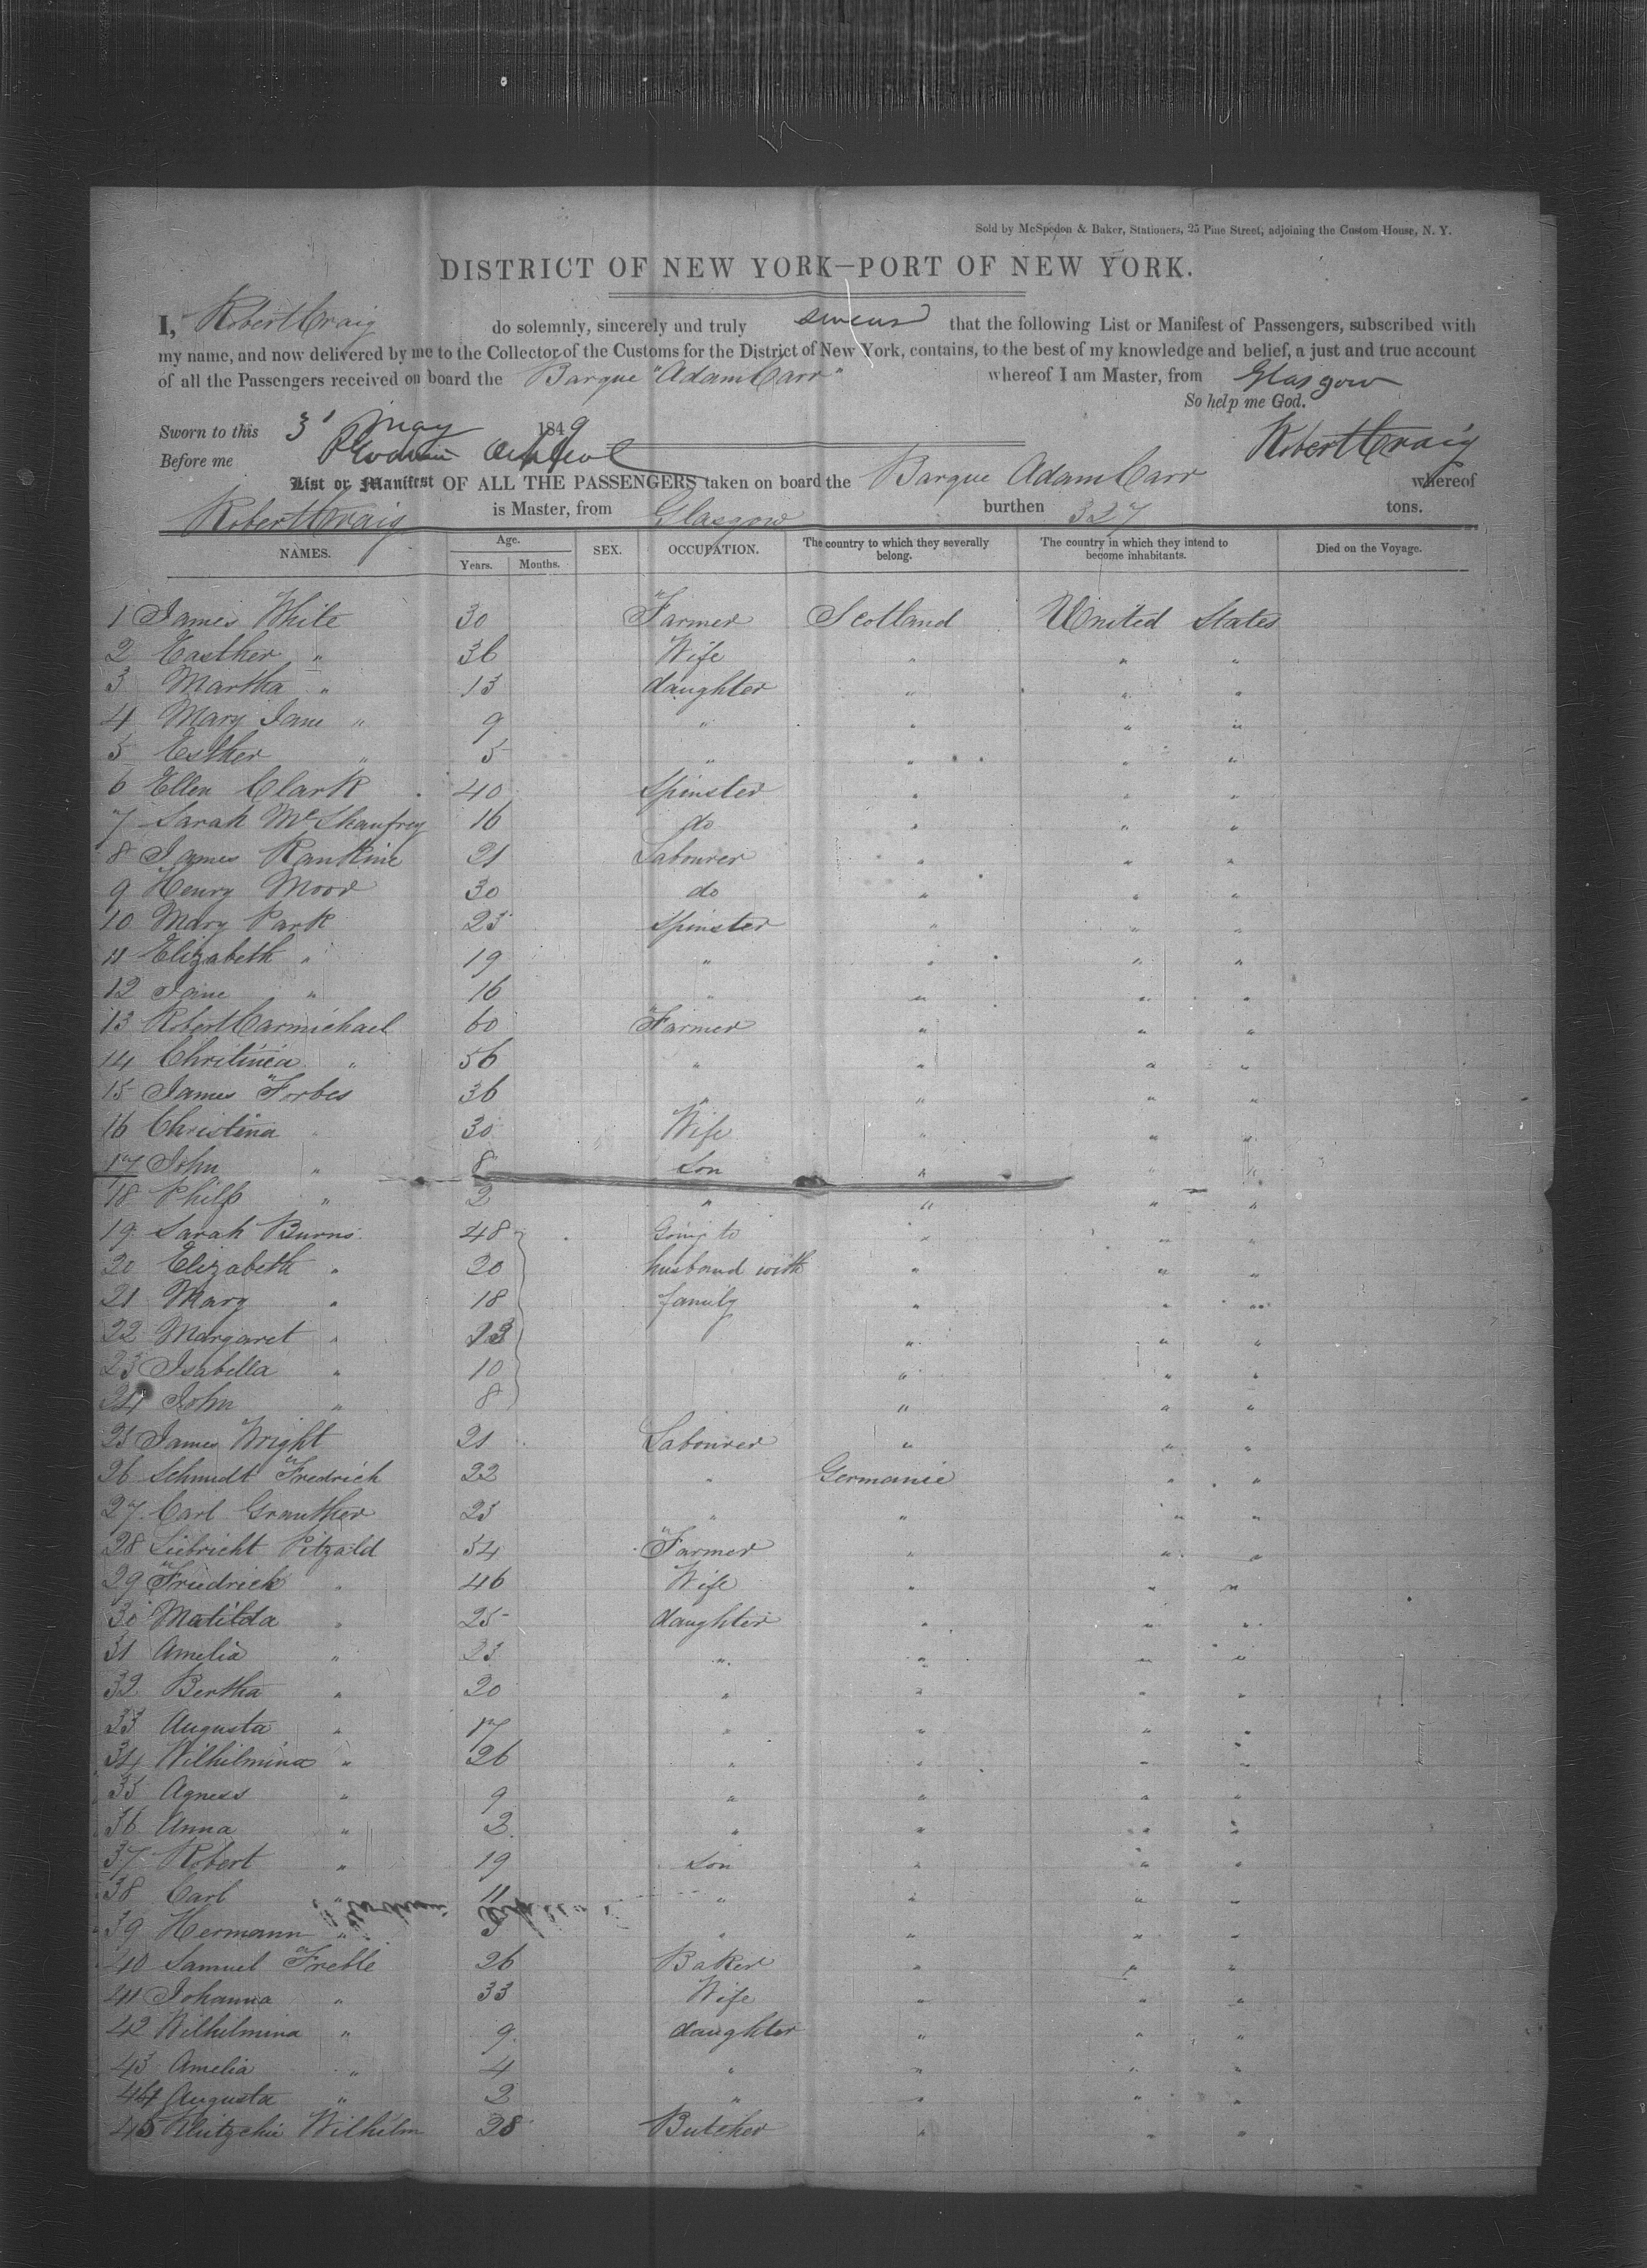 Sold by McSpedon & Baker, Stationers, 25 Pine Street, adjoining the Custom House, N. Y.
DISTRICT OF NEW YORK—PORT OF NEW YORK.
I, Robert Craig do solemnly, sincerely and truly swear that the following List or Manifest of Passengers, subscribed with
my name, and now delivered by me to the Collector of the Customs for the District of New York, contains, to the best of my knowledge and belief, a just and true account
of all the Passengers received on board the Barque "Adam Carr" whereof I am Master, from Glasgow
So help me God.
Sworn to this 3 May 1849 Robert Craig
Before me
List or Manifest OF ALL THE PASSENGERS taken on board the Barque Adam Carr whereof
Robert Craig is Master, from Glasgow burthen 327 tons.
NAMES. Age. Years. Months. SEX. OCCUPATION. The country to which they severally belong. The country in which they intend to become inhabitants. Died on the Voyage.
1 James White 30 Farmer Scotland United States
2 Easther " 36 Wife " " "
3 Martha " 13 daughter " " "
4 Mary Jane " 9 " " " "
5 Esther " 5 " " " "
6 Ellen Clark 40 Spinster " " "
7 Sarah 16 do " " "
8 James Rankine 21 Labourer " " "
9 Henry Moor 30 do " " "
10 Mary Park 23 Spinster " " "
11 Elizabeth " 19 " " " "
12 Jane " 16 " " " "
13 Robert Carmichael 60 Farmer " " "
14 Chritinea " 56 " " " "
15 James Forbes 36 " " " "
16 Christina " 30 Wife " " "
17 John " 8 Son " " "
18 Philp " 2 " " " "
19 Sarah Burns 48 Going to " " "
20 Elizabeth " 20 husband with " " "
21 Mary " 18 family " " "
22 Margaret " " " "
23 Isabella " 10 " " "
24 John " 8 " " "
25 James Wright 21 Labourer " " "
26 Schmidt Fredrich 22 " Germanie " "
27 Carl Grauther 23 " " " "
28 Liebricht Pitzald 54 Farmer " " "
29 Friedrick " 46 Wife " " "
30 Matilda " 25 daughter " " "
31 Amelia " 23 " " " "
32 Bertha " 20 " " " "
33 Augusta " 17 " " " "
34 Wilhilmina " 26 " " " "
35 Agness " 9 " " " "
36 Anna " 2 " " " "
37 Robert " 19 Son " " "
38 Carl " 11 " " " "
39 Hermann " 3 " " " "
40 Samuel Freble 26 Baker " " "
41 Johanna " 33 Wife " " "
42 Wilhelmina " 9 daughter " " "
43 Amelia " 4 " " " "
44 Augusta " 2 " " " "
45 Wilhilm 28 Butcher " " "